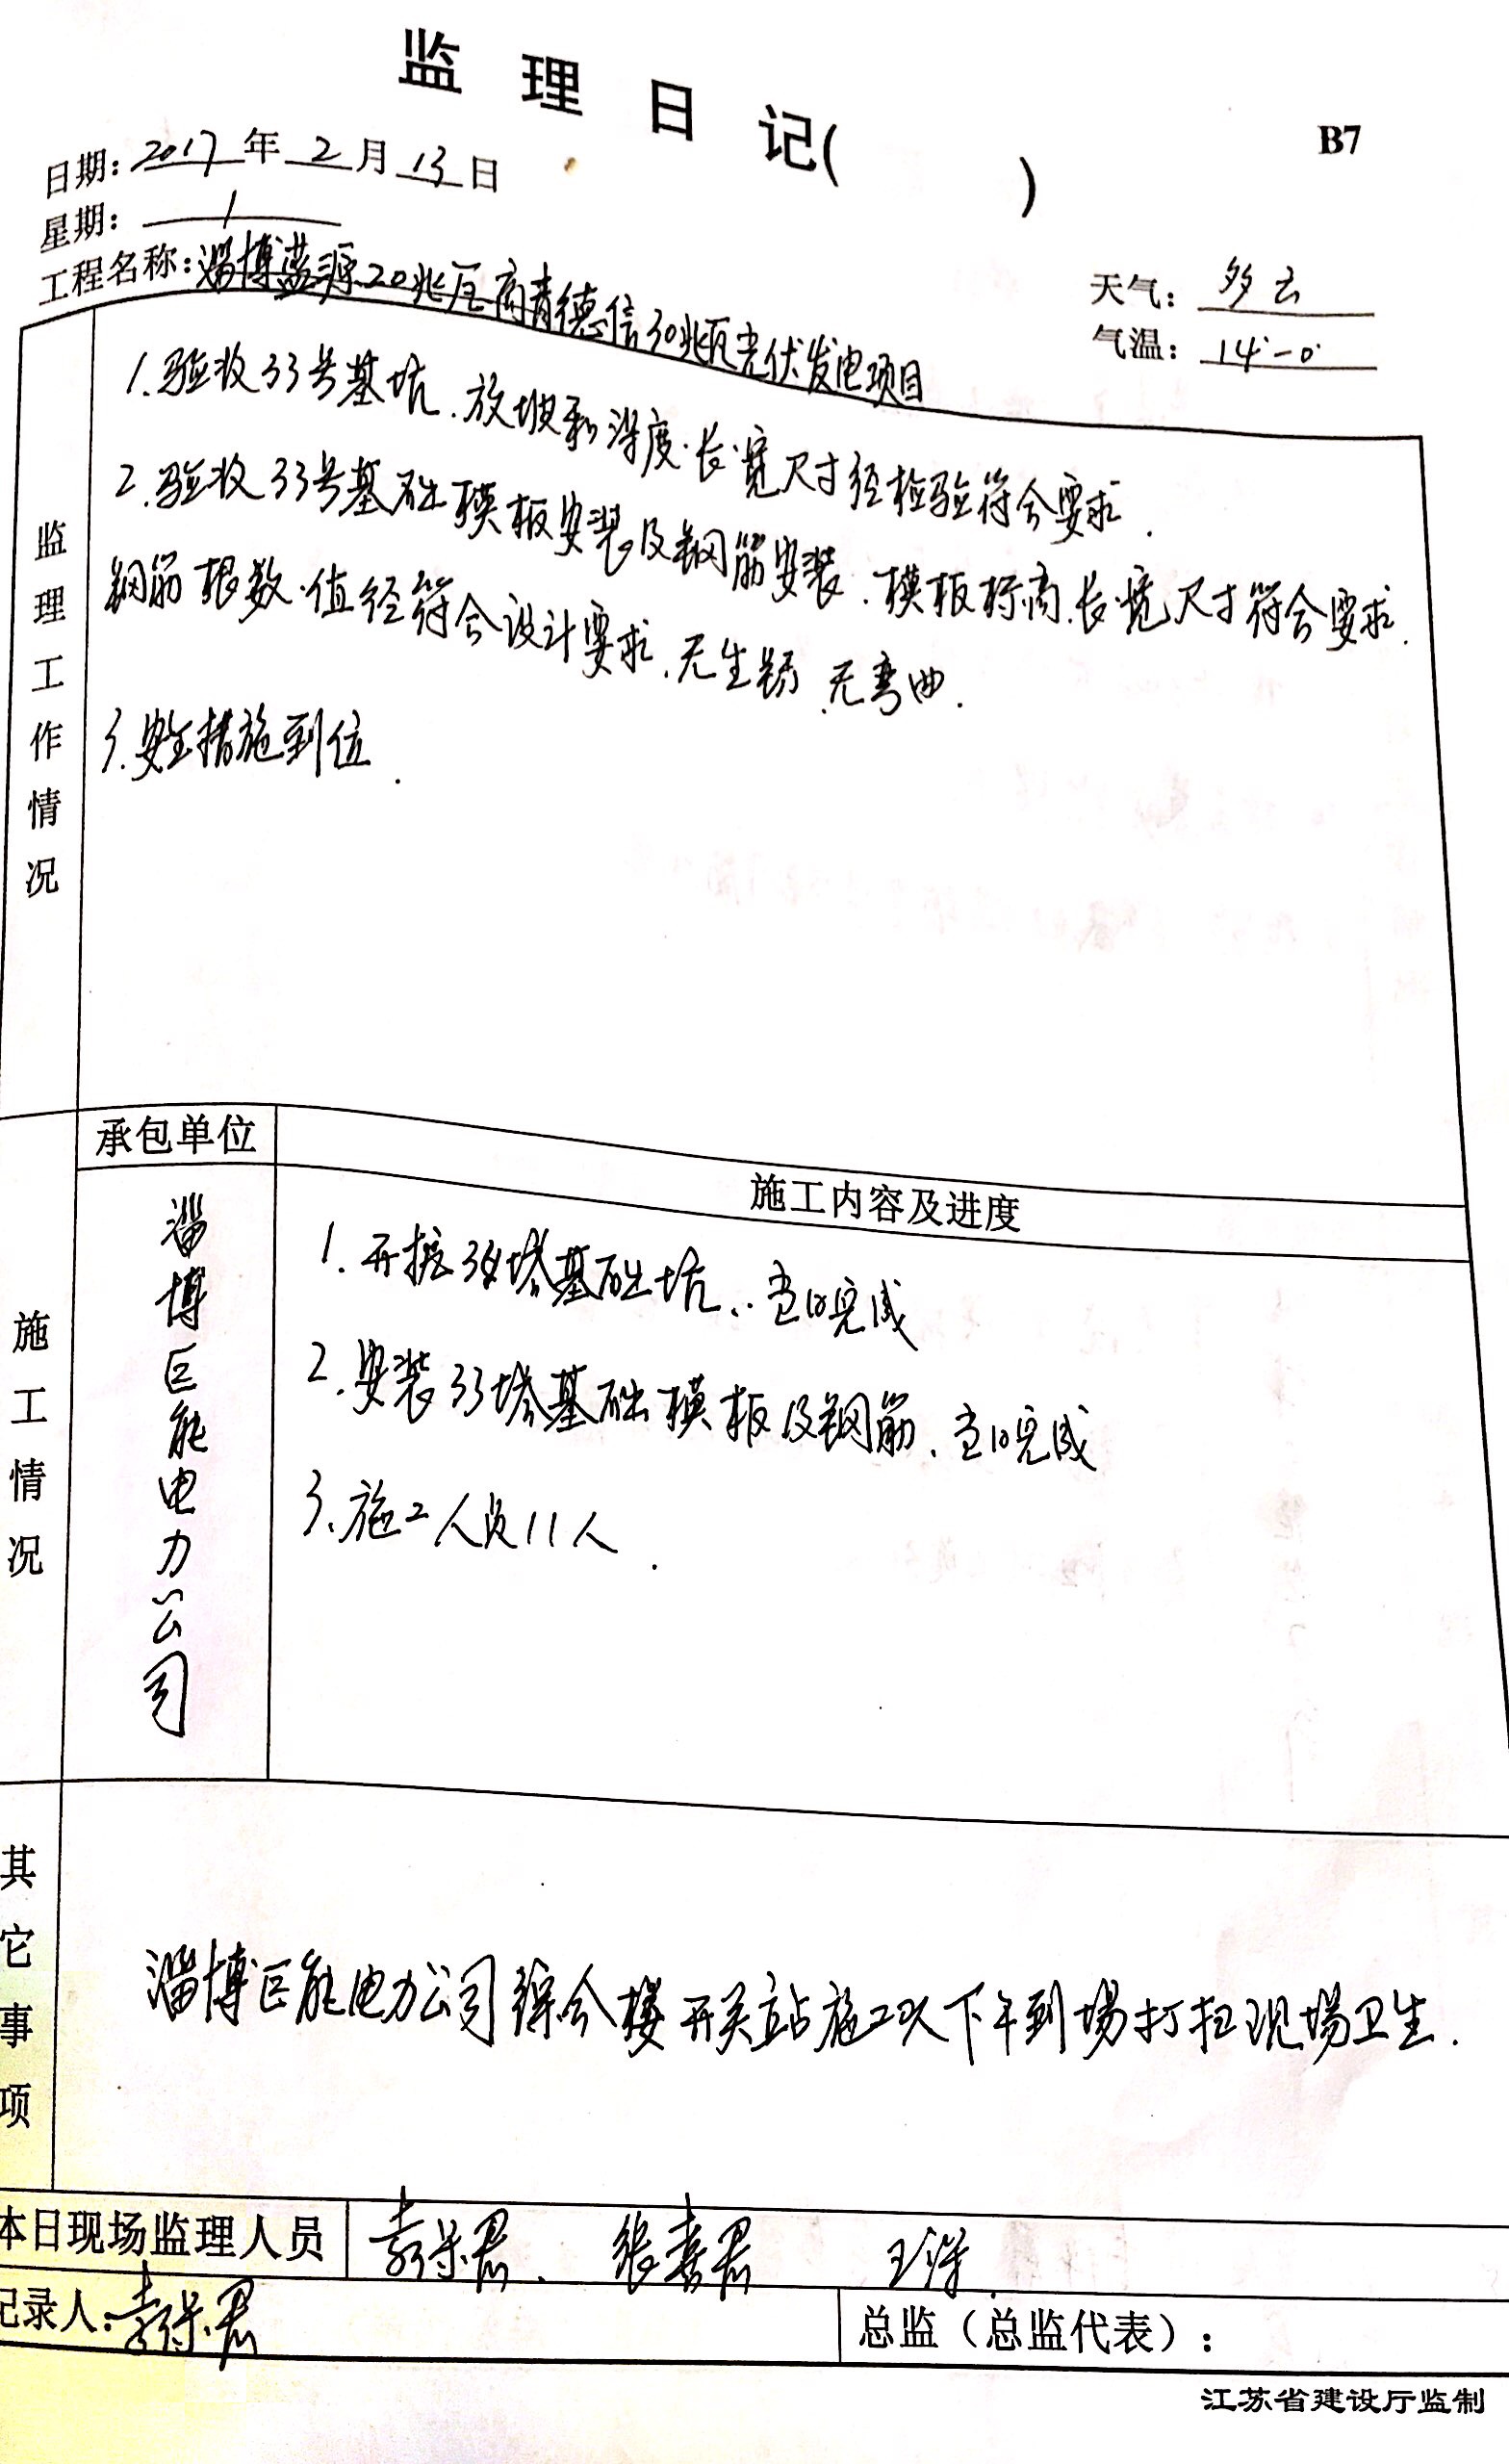 监理日记( )
B7
日期: 2017 年 2 月 13 日
星期: 1
工程名称: 淄博蓝源20兆瓦高青德信30兆瓦光伏发电项目
天气: 多云
气温: 14°-0°
监理工作情况
1.验收33号基坑.放坡和深度.长.宽尺寸经检验符合要求.
2.验收33号基础模板安装及钢筋安装.模板标高.长.宽尺寸符合要求.
钢筋根数.值经符合设计要求.无生锈.无弯曲.
3.安全措施到位.
施工情况
承包单位
施工内容及进度
淄博巨能电力公司
1.开挖 塔基础坑..当日完成
2.安装33塔基础模板及钢筋.当日完成
3.施工人员11人.
其它事项
淄博巨能电力公司综合楼开关站施工队下午到场打扫现场卫生.
本日现场监理人员
张喜君 王洋.
记录人:
总监（总监代表）:
江苏省建设厅监制